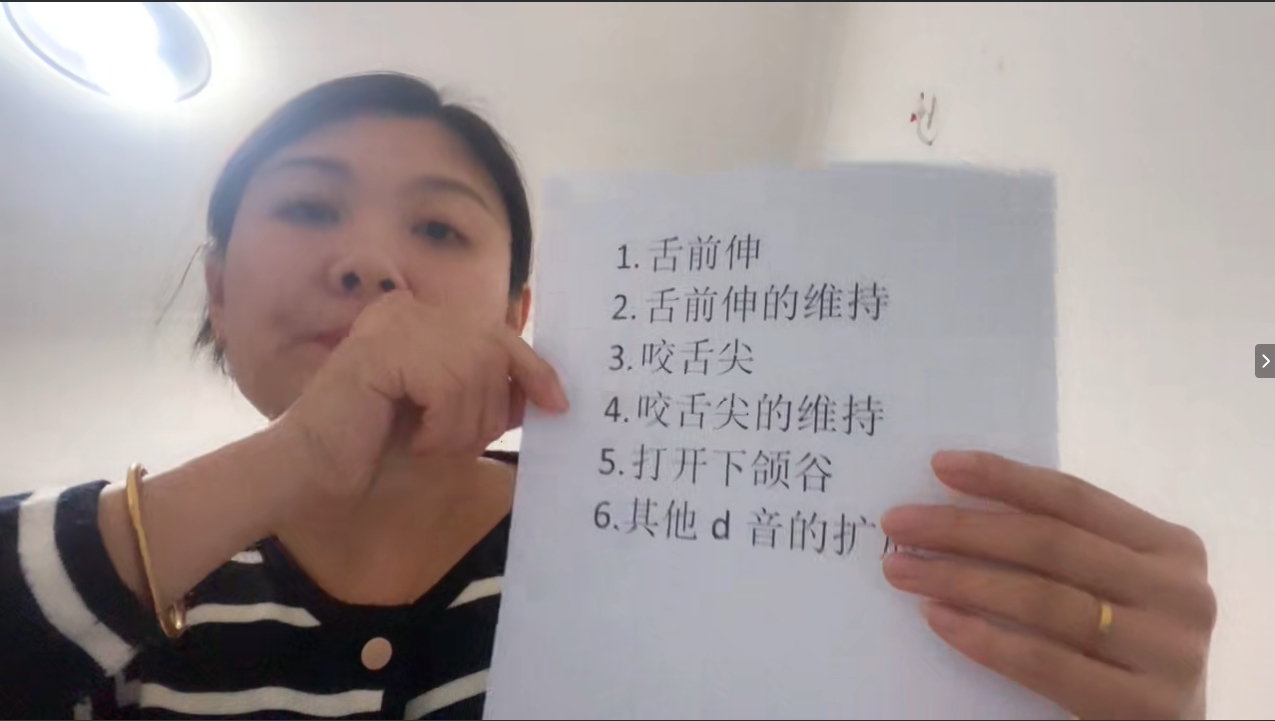 1. 舌前伸
2. 舌前伸的维持
3. 咬舌尖
4. 咬舌尖的维持
5. 打开下颌谷
6. 其他 d 音的扩